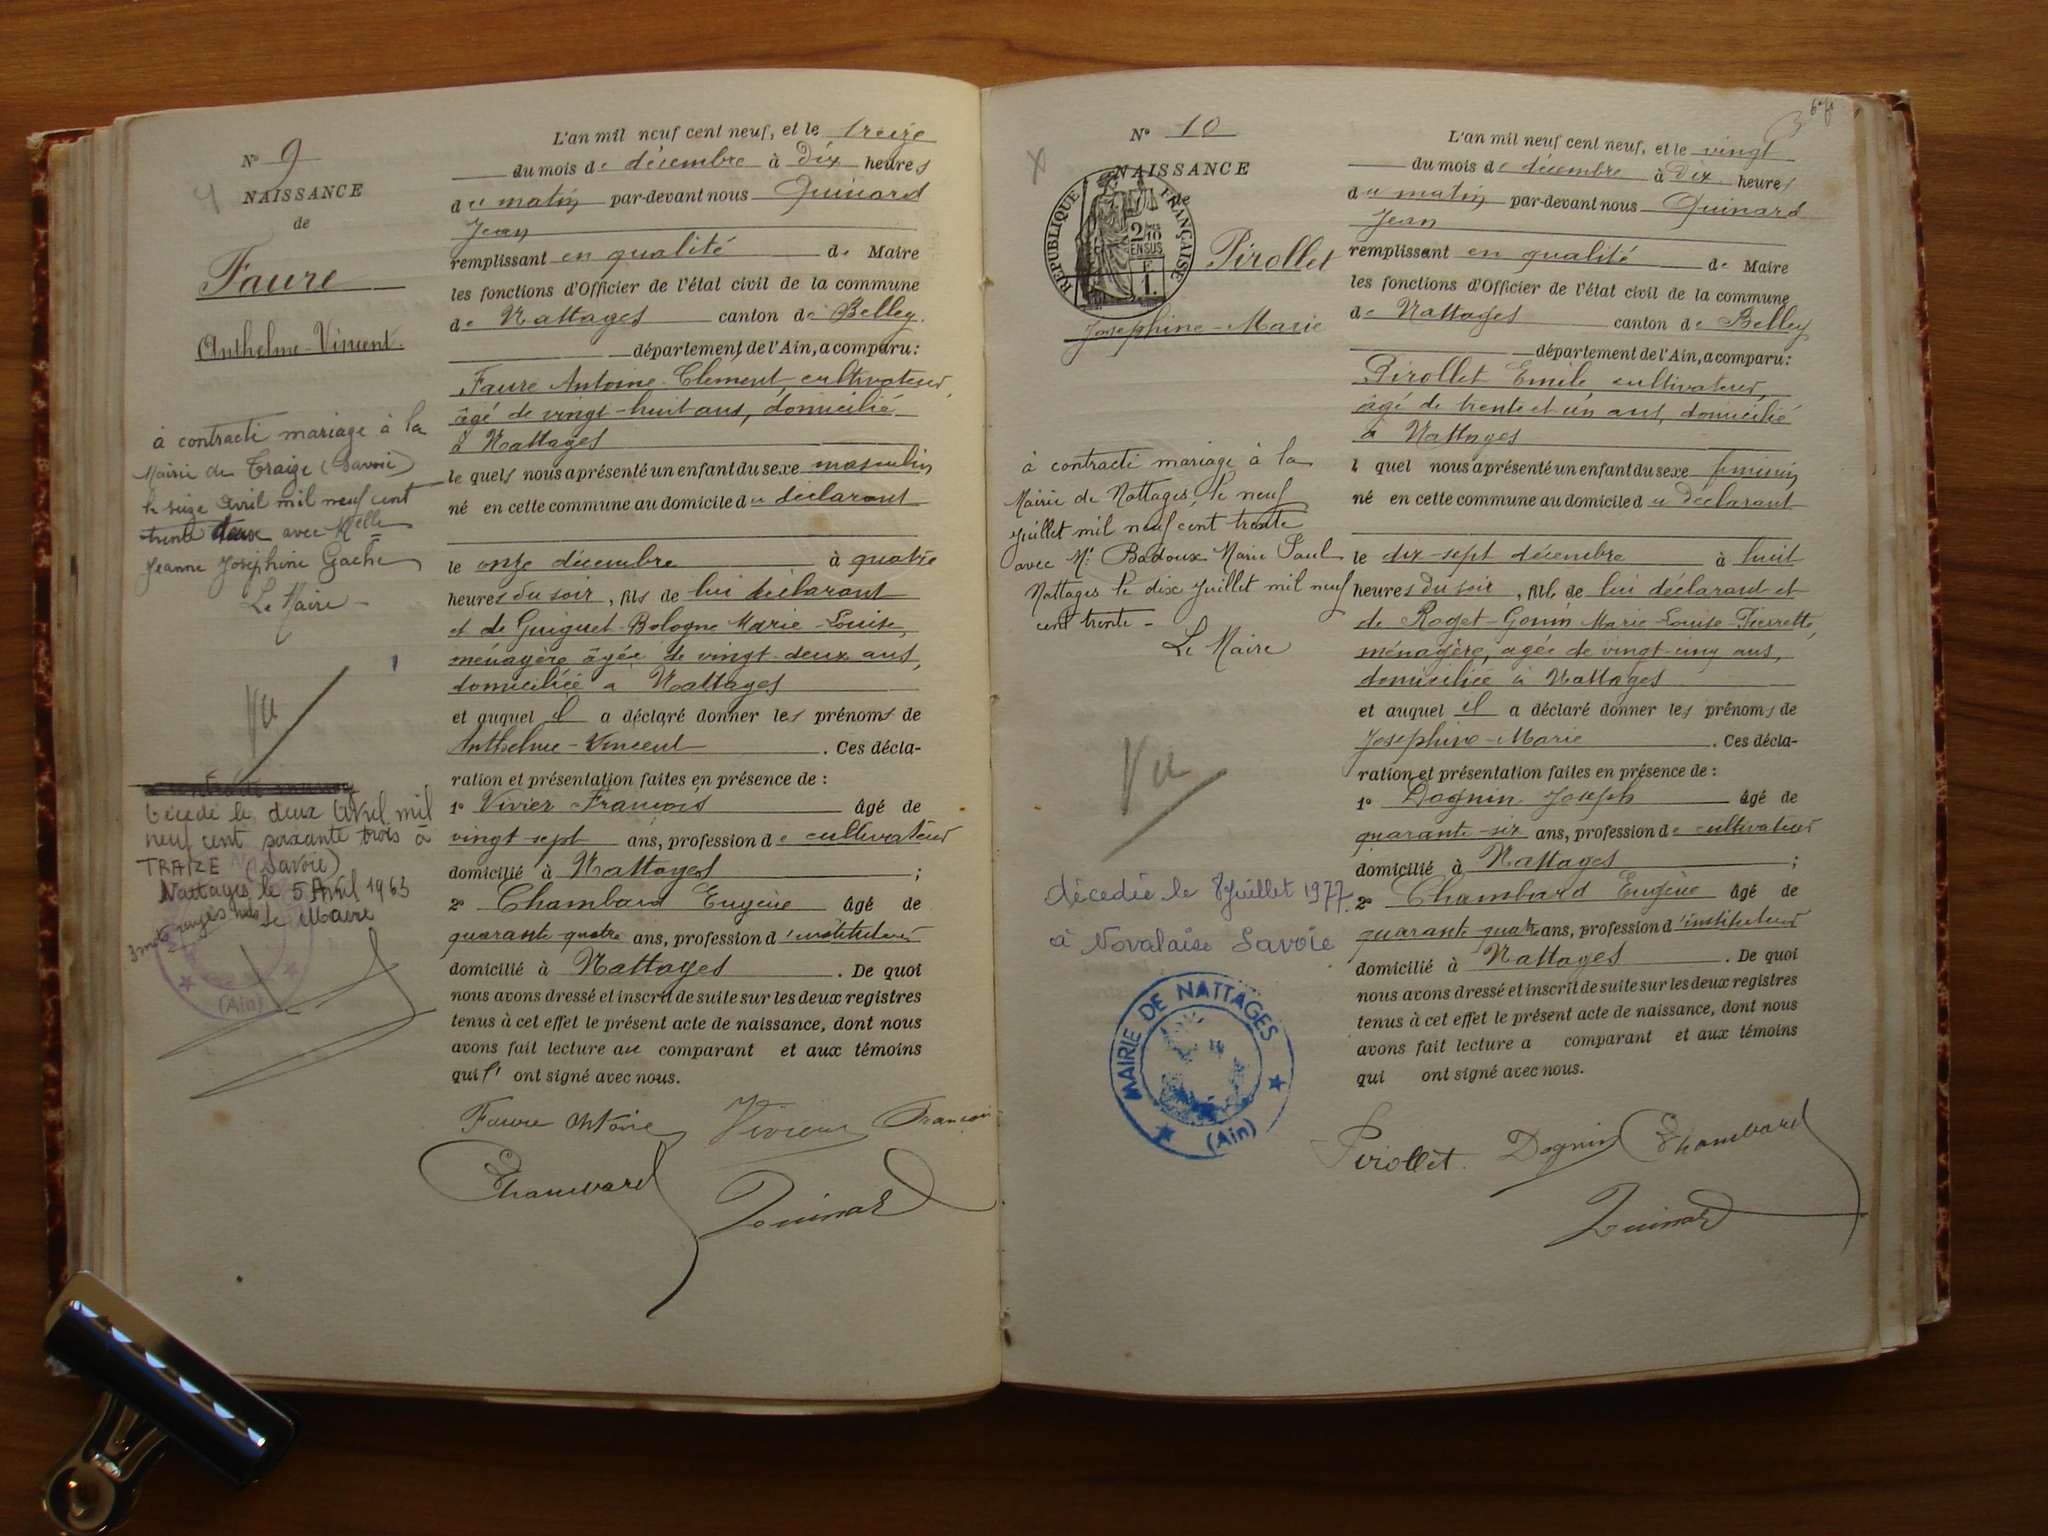 N° 9
NAISSANCE
de
Faure
Anthelme-Vincent.
à contracté mariage à la
Mairie de Traize (Savoie)
le seize Avril mil neuf cent
trente deux avec Melle
Jeanne Joséphine Gache
Le Maire
Vu
Décédé le deux Avril mil
neuf cent soixante trois à
TRAIZE (Savoie)
Nattages le 5 Avril 1963
3 mots rayés nuls Le Maire
(Ain)
L'an mil neuf cent neuf, et le treize
du mois de décembre à dix heures
du matin par-devant nous Quinard
Jean
remplissant en qualité de Maire
les fonctions d'Officier de l'état civil de la commune
de Nattages canton de Belley.
département de l'Ain, a comparu:
Faure Antoine-Clément, cultivateur,
âgé de vingt-huit ans, domicilié
à Nattages
le quels nous a présenté un enfant du sexe masculin
né en cette commune au domicile du déclarant
le onze décembre à quatre
heures du soir, fils de lui déclarant
et de Guiguet-Bologne Marie-Louise,
ménagère âgée de vingt-deux ans,
domiciliée à Nattages
et auquel il a déclaré donner les prénoms de
Anthelme-Vincent. Ces décla-
ration et présentation faites en présence de:
1° Vivier François âgé de
vingt-sept ans, profession de cultivateur
domicilié à Nattages;
2° Chambard Eugène âgé de
quarante-quatre ans, profession d'instituteur
domicilié à Nattages. De quoi
nous avons dressé et inscrit de suite sur les deux registres
tenus à cet effet le présent acte de naissance, dont nous
avons fait lecture au comparant et aux témoins
qui l' ont signé avec nous.
Faure Antoine Vivier François
Chambard Quinard
N° 10
NAISSANCE
de
RÉPUBLIQUE FRANÇAISE
2/10
EN SUS
F
1.
Pirollet
Josephine-Marie
à contracté mariage à la
Mairie de Nattages le neuf
juillet mil neuf cent trente
avec Mr Badoux Marie Paul
Nattages le dix juillet mil neuf
cent trente -
Le Maire
Vu
décédée le 8 juillet 1977
à Novalaise Savoie
MAIRIE DE NATTAGES
(Ain)
L'an mil neuf cent neuf, et le vingt
du mois de décembre à dix heures
du matin par-devant nous Quinard
Jean
remplissant en qualité de Maire
les fonctions d'Officier de l'état civil de la commune
de Nattages canton de Belley
département de l'Ain, a comparu:
Pirollet Emile cultivateur,
âgé de trente et un ans, domicilié
à Nattages
l quel nous a présenté un enfant du sexe féminin
né en cette commune au domicile du déclarant
le dix-sept décembre à huit
heures du soir, fille de lui déclarant et
de Roget-Gonin Marie-Louise-Pierrette,
ménagère, agée de vingt-cinq ans,
domiciliée à Nattages
et auquel il a déclaré donner les prénoms de
Josephine-Marie. Ces décla-
ration et présentation faites en présence de:
1° Dognin Joseph âgé de
quarante-six ans, profession de cultivateur
domicilié à Nattages;
2° Chambard Eugène âgé de
quarante quatre ans, profession d'instituteur
domicilié à Nattages. De quoi
nous avons dressé et inscrit de suite sur les deux registres
tenus à cet effet le présent acte de naissance, dont nous
avons fait lecture a comparant et aux témoins
qui ont signé avec nous.
Pirollet. Dognin Chambard
Quinard